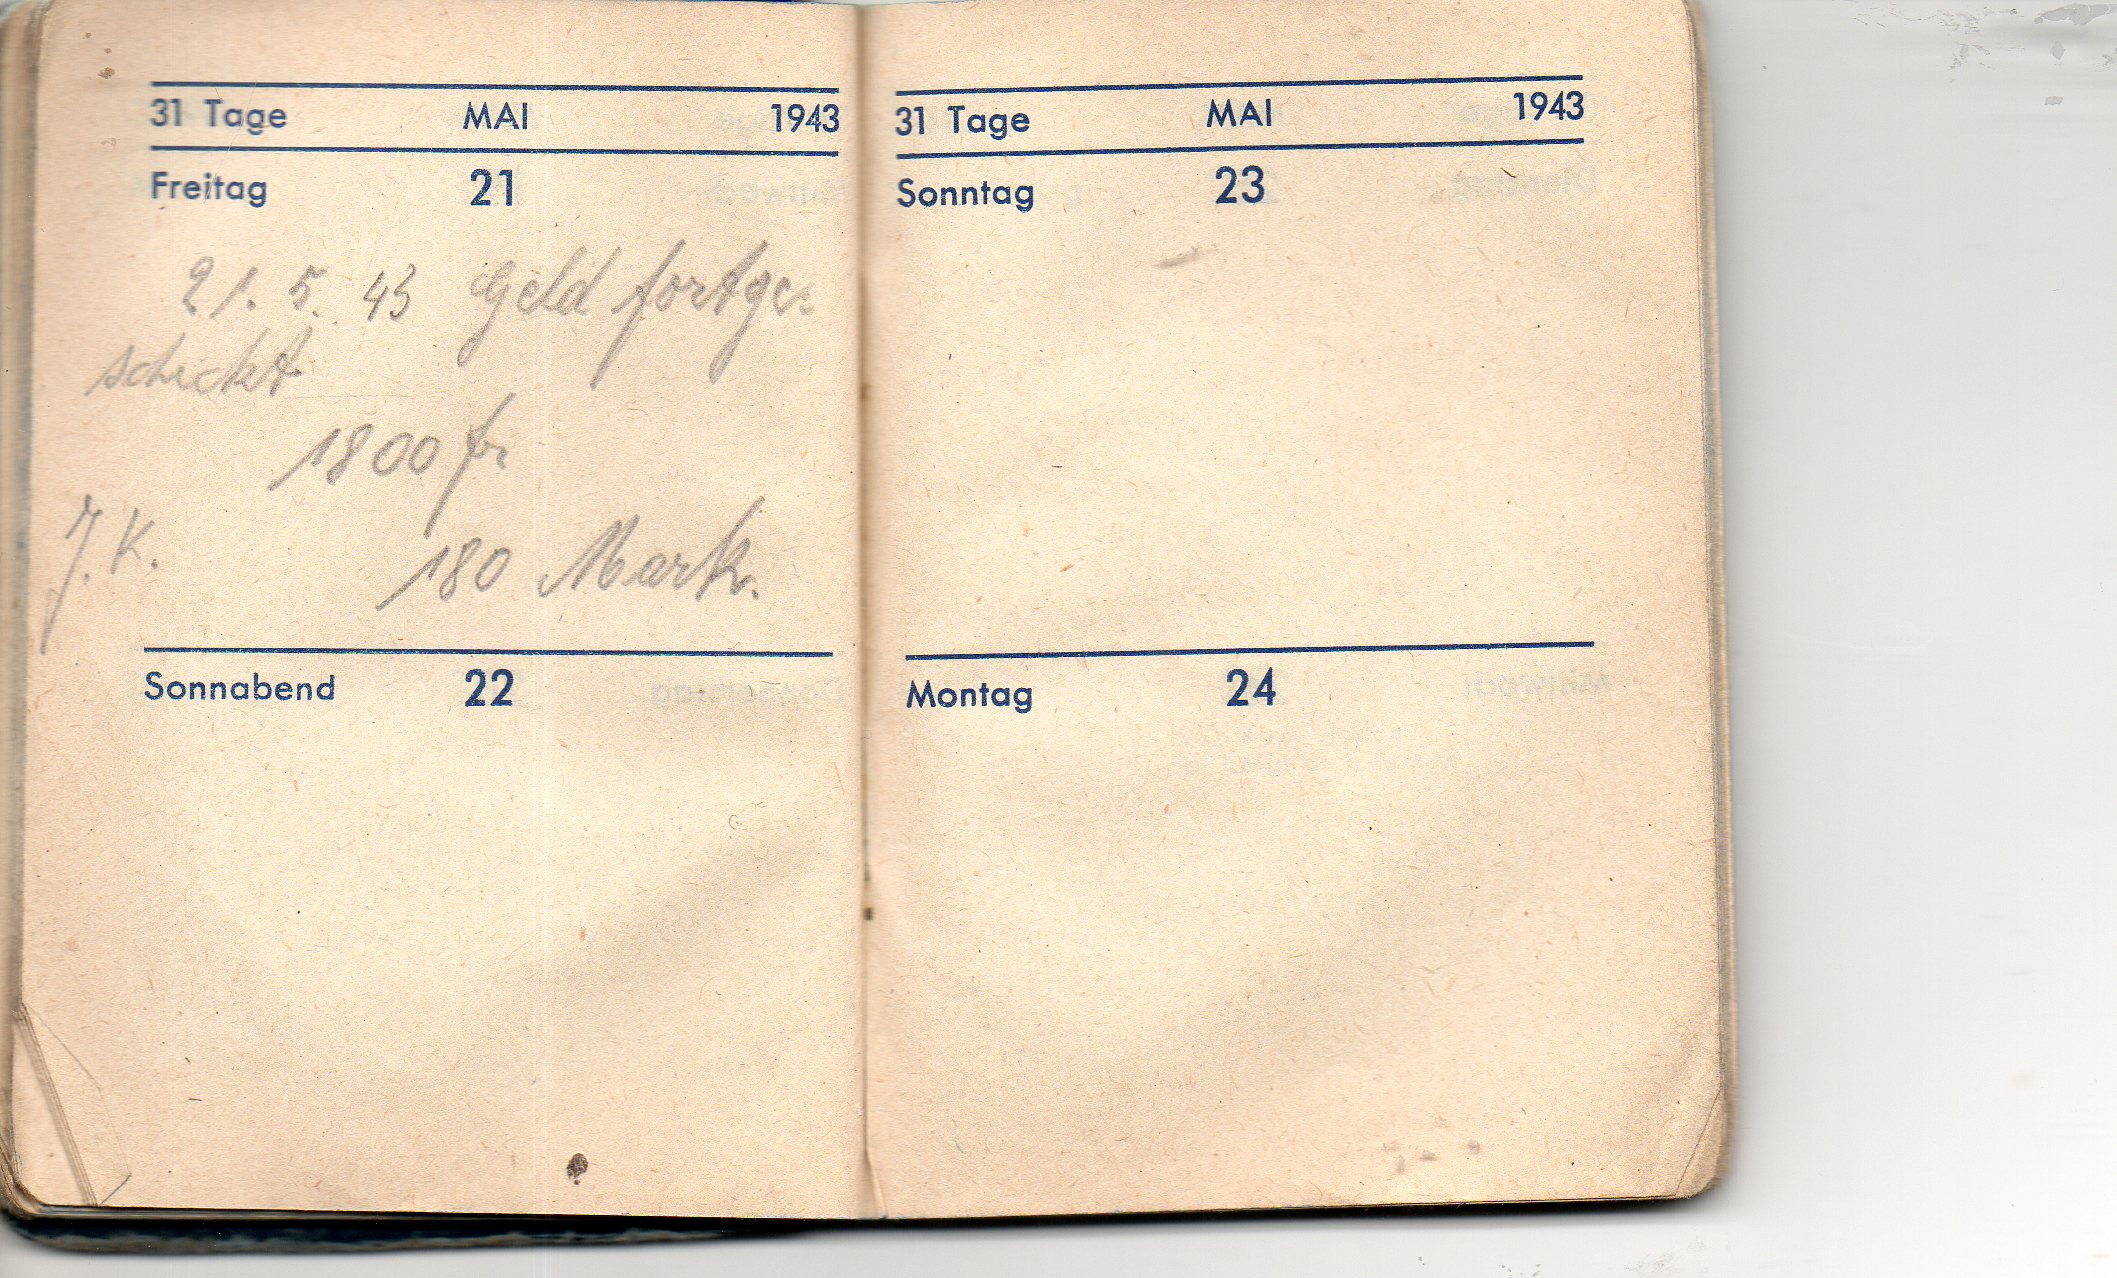 31 Tage MAI 1943
Freitag 21
21. 5. 43 Geld fortge-
schickt
1800 fr
J. K. 180 Mark.
Sonnabend 22
31 Tage MAI 1943
Sonntag 23
Montag 24